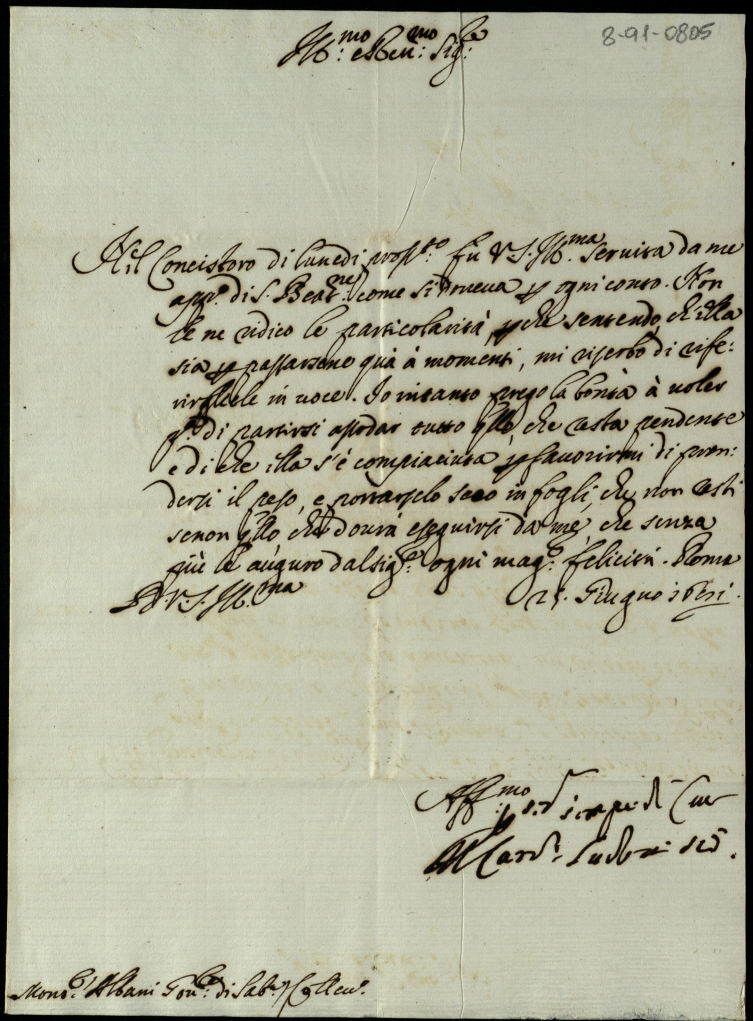 8-91-0805
Ill.mo e Rev.mo Sig.re
Nel Concistoro di lunedi pross.to fù V.S. Ill.ma servita da me
app.o di S. Beat.ne come si doveva p ogni conto. Non
le ne ridico le particolarità, pche sentendo, ch'ella
sia p passarsene quà à momenti, mi riserbo di rife-
rirgliele in voce. Io intanto prego la bontà à voler
p.a di partirsi assodar tutto qllo che resta pendente
e di che ella s'è compiaciuta p favorirmi di pren-
dersi il peso, e portarselo seco in fogli, che non resti
senon qllo che dovrà eseguirsi da me, che senza
più le auguro dal Sig.re ogni mag.e felicità. Roma
D. V. S. Ill.ma 25. Giugno
Aff.mo
Il Card.
Mons.r Albani Gov.re di Sab.a Collev.o